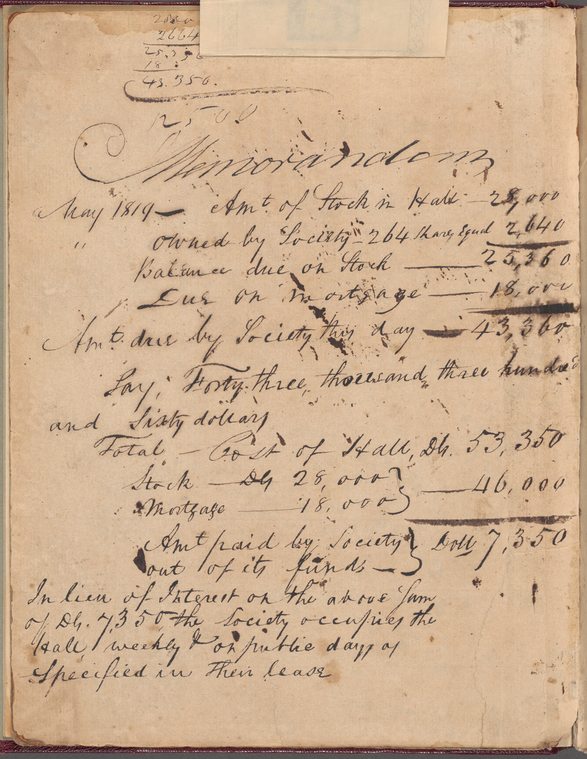 2664
25.336
18
43.350.
12500
Memorandom
May 1819 — Amt. of Stock in Hall — 28,000
" owned by Society — 264 Shares Equal 2,640
Balance due on Stock — 25,360
Due on mortgage — 18,000
Amt. due by Society this day — 43,360
Say, Forty three thousand three hundred
and Sixty dollars
Total — Cost of Hall, Dls. 53,350
Stock — Dls 28,000 }
Mortgage — 18,000 } — 46,000
Amt paid by Society } Doll 7,350
out of its funds — }
In lieu of Interest on the above Sum
of Dls. 7,350 the Society occupies the
Hall weekly & on public days as
Specified in their lease